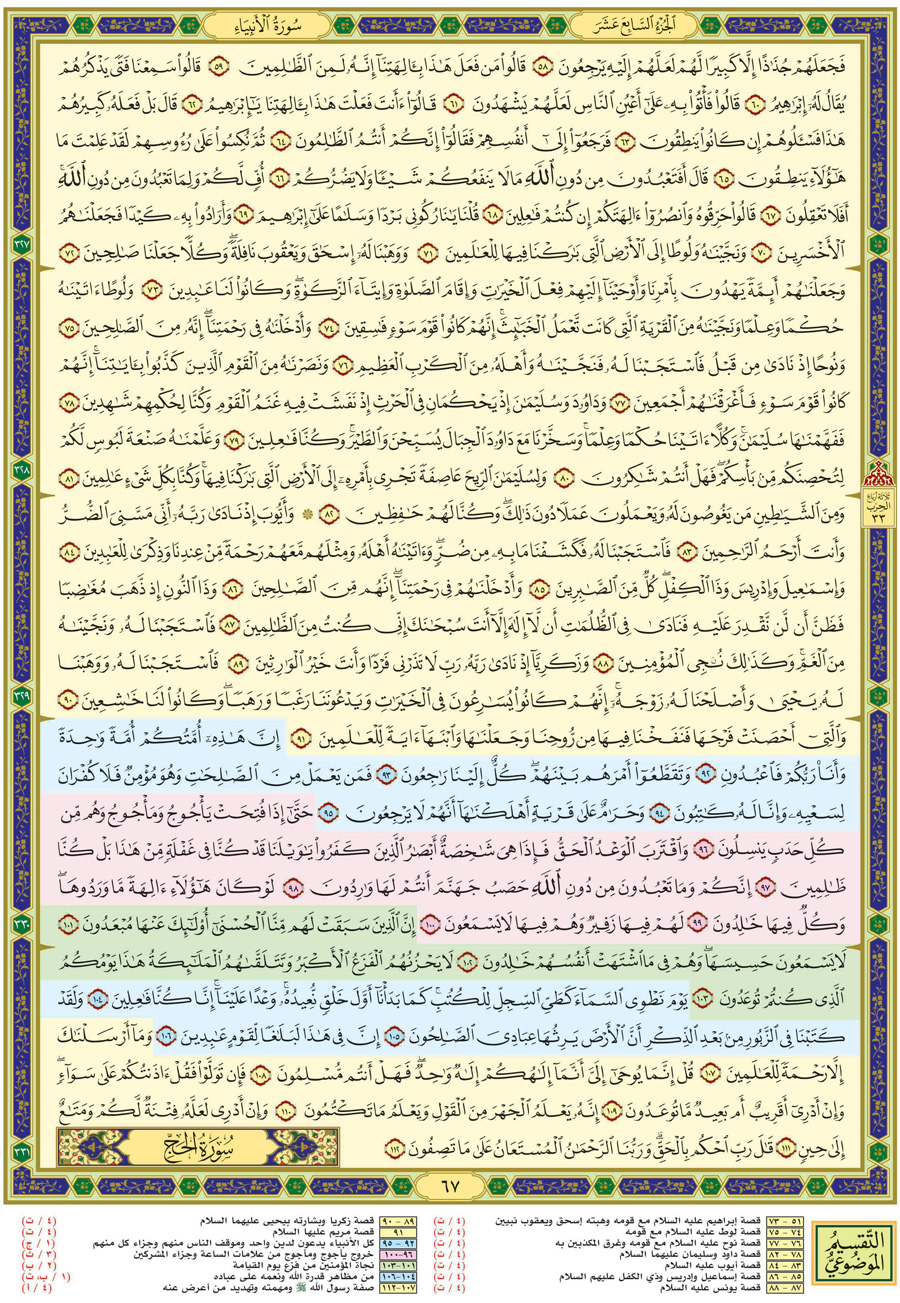 الجزء السابع عشر
سورة الأنبياء
فَجَعَلَهُمْ جُذَٰذًا إِلَّا كَبِيرًا لَّهُمْ لَعَلَّهُمْ إِلَيْهِ يَرْجِعُونَ ٥٨ قَالُوا۟ مَن فَعَلَ هَٰذَا بِـَٔالِهَتِنَآ إِنَّهُۥ لَمِنَ ٱلظَّٰلِمِينَ ٥٩ قَالُوا۟ سَمِعْنَا فَتًى يَذْكُرُهُمْ
يُقَالُ لَهُۥٓ إِبْرَٰهِيمُ ٦٠ قَالُوا۟ فَأْتُوا۟ بِهِۦ عَلَىٰٓ أَعْيُنِ ٱلنَّاسِ لَعَلَّهُمْ يَشْهَدُونَ ٦١ قَالُوٓا۟ ءَأَنتَ فَعَلْتَ هَٰذَا بِـَٔالِهَتِنَا يَٰٓإِبْرَٰهِيمُ ٦٢ قَالَ بَلْ فَعَلَهُۥ كَبِيرُهُمْ
هَٰذَا فَسْـَٔلُوهُمْ إِن كَانُوا۟ يَنطِقُونَ ٦٣ فَرَجَعُوٓا۟ إِلَىٰٓ أَنفُسِهِمْ فَقَالُوٓا۟ إِنَّكُمْ أَنتُمُ ٱلظَّٰلِمُونَ ٦٤ ثُمَّ نُكِسُوا۟ عَلَىٰ رُءُوسِهِمْ لَقَدْ عَلِمْتَ مَا
هَٰٓؤُلَآءِ يَنطِقُونَ ٦٥ قَالَ أَفَتَعْبُدُونَ مِن دُونِ ٱللَّهِ مَا لَا يَنفَعُكُمْ شَيْـًٔا وَلَا يَضُرُّكُمْ ٦٦ أُفٍّ لَّكُمْ وَلِمَا تَعْبُدُونَ مِن دُونِ ٱللَّهِ
أَفَلَا تَعْقِلُونَ ٦٧ قَالُوا۟ حَرِّقُوهُ وَٱنصُرُوٓا۟ ءَالِهَتَكُمْ إِن كُنتُمْ فَٰعِلِينَ ٦٨ قُلْنَا يَٰنَارُ كُونِى بَرْدًا وَسَلَٰمًا عَلَىٰٓ إِبْرَٰهِيمَ ٦٩ وَأَرَادُوا۟ بِهِۦ كَيْدًا فَجَعَلْنَٰهُمُ
ٱلْأَخْسَرِينَ ٧٠ وَنَجَّيْنَٰهُ وَلُوطًا إِلَى ٱلْأَرْضِ ٱلَّتِى بَٰرَكْنَا فِيهَا لِلْعَٰلَمِينَ ٧١ وَوَهَبْنَا لَهُۥٓ إِسْحَٰقَ وَيَعْقُوبَ نَافِلَةً وَكُلًّا جَعَلْنَا صَٰلِحِينَ ٧٢
وَجَعَلْنَٰهُمْ أَئِمَّةً يَهْدُونَ بِأَمْرِنَا وَأَوْحَيْنَآ إِلَيْهِمْ فِعْلَ ٱلْخَيْرَٰتِ وَإِقَامَ ٱلصَّلَوٰةِ وَإِيتَآءَ ٱلزَّكَوٰةِ وَكَانُوا۟ لَنَا عَٰبِدِينَ ٧٣ وَلُوطًا ءَاتَيْنَٰهُ
حُكْمًا وَعِلْمًا وَنَجَّيْنَٰهُ مِنَ ٱلْقَرْيَةِ ٱلَّتِى كَانَت تَّعْمَلُ ٱلْخَبَٰٓئِثَ إِنَّهُمْ كَانُوا۟ قَوْمَ سَوْءٍ فَٰسِقِينَ ٧٤ وَأَدْخَلْنَٰهُ فِى رَحْمَتِنَآ إِنَّهُۥ مِنَ ٱلصَّٰلِحِينَ ٧٥
وَنُوحًا إِذْ نَادَىٰ مِن قَبْلُ فَٱسْتَجَبْنَا لَهُۥ فَنَجَّيْنَٰهُ وَأَهْلَهُۥ مِنَ ٱلْكَرْبِ ٱلْعَظِيمِ ٧٦ وَنَصَرْنَٰهُ مِنَ ٱلْقَوْمِ ٱلَّذِينَ كَذَّبُوا۟ بِـَٔايَٰتِنَآ إِنَّهُمْ
كَانُوا۟ قَوْمَ سَوْءٍ فَأَغْرَقْنَٰهُمْ أَجْمَعِينَ ٧٧ وَدَاوُۥدَ وَسُلَيْمَٰنَ إِذْ يَحْكُمَانِ فِى ٱلْحَرْثِ إِذْ نَفَشَتْ فِيهِ غَنَمُ ٱلْقَوْمِ وَكُنَّا لِحُكْمِهِمْ شَٰهِدِينَ ٧٨
فَفَهَّمْنَٰهَا سُلَيْمَٰنَ وَكُلًّا ءَاتَيْنَا حُكْمًا وَعِلْمًا وَسَخَّرْنَا مَعَ دَاوُۥدَ ٱلْجِبَالَ يُسَبِّحْنَ وَٱلطَّيْرَ وَكُنَّا فَٰعِلِينَ ٧٩ وَعَلَّمْنَٰهُ صَنْعَةَ لَبُوسٍ لَّكُمْ
لِتُحْصِنَكُم مِّنۢ بَأْسِكُمْ فَهَلْ أَنتُمْ شَٰكِرُونَ ٨٠ وَلِسُلَيْمَٰنَ ٱلرِّيحَ عَاصِفَةً تَجْرِى بِأَمْرِهِۦٓ إِلَى ٱلْأَرْضِ ٱلَّتِى بَٰرَكْنَا فِيهَا وَكُنَّا بِكُلِّ شَىْءٍ عَٰلِمِينَ ٨١
وَمِنَ ٱلشَّيَٰطِينِ مَن يَغُوصُونَ لَهُۥ وَيَعْمَلُونَ عَمَلًا دُونَ ذَٰلِكَ وَكُنَّا لَهُمْ حَٰفِظِينَ ٨٢ ۞ وَأَيُّوبَ إِذْ نَادَىٰ رَبَّهُۥٓ أَنِّى مَسَّنِىَ ٱلضُّرُّ
وَأَنتَ أَرْحَمُ ٱلرَّٰحِمِينَ ٨٣ فَٱسْتَجَبْنَا لَهُۥ فَكَشَفْنَا مَا بِهِۦ مِن ضُرٍّ وَءَاتَيْنَٰهُ أَهْلَهُۥ وَمِثْلَهُم مَّعَهُمْ رَحْمَةً مِّنْ عِندِنَا وَذِكْرَىٰ لِلْعَٰبِدِينَ ٨٤
وَإِسْمَٰعِيلَ وَإِدْرِيسَ وَذَا ٱلْكِفْلِ كُلٌّ مِّنَ ٱلصَّٰبِرِينَ ٨٥ وَأَدْخَلْنَٰهُمْ فِى رَحْمَتِنَآ إِنَّهُم مِّنَ ٱلصَّٰلِحِينَ ٨٦ وَذَا ٱلنُّونِ إِذ ذَّهَبَ مُغَٰضِبًا
فَظَنَّ أَن لَّن نَّقْدِرَ عَلَيْهِ فَنَادَىٰ فِى ٱلظُّلُمَٰتِ أَن لَّآ إِلَٰهَ إِلَّآ أَنتَ سُبْحَٰنَكَ إِنِّى كُنتُ مِنَ ٱلظَّٰلِمِينَ ٨٧ فَٱسْتَجَبْنَا لَهُۥ وَنَجَّيْنَٰهُ
مِنَ ٱلْغَمِّ وَكَذَٰلِكَ نُۨجِى ٱلْمُؤْمِنِينَ ٨٨ وَزَكَرِيَّآ إِذْ نَادَىٰ رَبَّهُۥ رَبِّ لَا تَذَرْنِى فَرْدًا وَأَنتَ خَيْرُ ٱلْوَٰرِثِينَ ٨٩ فَٱسْتَجَبْنَا لَهُۥ وَوَهَبْنَا
لَهُۥ يَحْيَىٰ وَأَصْلَحْنَا لَهُۥ زَوْجَهُۥٓ إِنَّهُمْ كَانُوا۟ يُسَٰرِعُونَ فِى ٱلْخَيْرَٰتِ وَيَدْعُونَنَا رَغَبًا وَرَهَبًا وَكَانُوا۟ لَنَا خَٰشِعِينَ ٩٠
وَٱلَّتِىٓ أَحْصَنَتْ فَرْجَهَا فَنَفَخْنَا فِيهَا مِن رُّوحِنَا وَجَعَلْنَٰهَا وَٱبْنَهَآ ءَايَةً لِّلْعَٰلَمِينَ ٩١ إِنَّ هَٰذِهِۦٓ أُمَّتُكُمْ أُمَّةً وَٰحِدَةً
وَأَنَا۠ رَبُّكُمْ فَٱعْبُدُونِ ٩٢ وَتَقَطَّعُوٓا۟ أَمْرَهُم بَيْنَهُمْ كُلٌّ إِلَيْنَا رَٰجِعُونَ ٩٣ فَمَن يَعْمَلْ مِنَ ٱلصَّٰلِحَٰتِ وَهُوَ مُؤْمِنٌ فَلَا كُفْرَانَ
لِسَعْيِهِۦ وَإِنَّا لَهُۥ كَٰتِبُونَ ٩٤ وَحَرَٰمٌ عَلَىٰ قَرْيَةٍ أَهْلَكْنَٰهَآ أَنَّهُمْ لَا يَرْجِعُونَ ٩٥ حَتَّىٰٓ إِذَا فُتِحَتْ يَأْجُوجُ وَمَأْجُوجُ وَهُم مِّن
كُلِّ حَدَبٍ يَنسِلُونَ ٩٦ وَٱقْتَرَبَ ٱلْوَعْدُ ٱلْحَقُّ فَإِذَا هِىَ شَٰخِصَةٌ أَبْصَٰرُ ٱلَّذِينَ كَفَرُوا۟ يَٰوَيْلَنَا قَدْ كُنَّا فِى غَفْلَةٍ مِّنْ هَٰذَا بَلْ كُنَّا
ظَٰلِمِينَ ٩٧ إِنَّكُمْ وَمَا تَعْبُدُونَ مِن دُونِ ٱللَّهِ حَصَبُ جَهَنَّمَ أَنتُمْ لَهَا وَٰرِدُونَ ٩٨ لَوْ كَانَ هَٰٓؤُلَآءِ ءَالِهَةً مَّا وَرَدُوهَا
وَكُلٌّ فِيهَا خَٰلِدُونَ ٩٩ لَهُمْ فِيهَا زَفِيرٌ وَهُمْ فِيهَا لَا يَسْمَعُونَ ١٠٠ إِنَّ ٱلَّذِينَ سَبَقَتْ لَهُم مِّنَّا ٱلْحُسْنَىٰٓ أُو۟لَٰٓئِكَ عَنْهَا مُبْعَدُونَ ١٠١
لَا يَسْمَعُونَ حَسِيسَهَا وَهُمْ فِى مَا ٱشْتَهَتْ أَنفُسُهُمْ خَٰلِدُونَ ١٠٢ لَا يَحْزُنُهُمُ ٱلْفَزَعُ ٱلْأَكْبَرُ وَتَتَلَقَّىٰهُمُ ٱلْمَلَٰٓئِكَةُ هَٰذَا يَوْمُكُمُ
ٱلَّذِى كُنتُمْ تُوعَدُونَ ١٠٣ يَوْمَ نَطْوِى ٱلسَّمَآءَ كَطَىِّ ٱلسِّجِلِّ لِلْكُتُبِ كَمَا بَدَأْنَآ أَوَّلَ خَلْقٍ نُّعِيدُهُۥ وَعْدًا عَلَيْنَآ إِنَّا كُنَّا فَٰعِلِينَ ١٠٤ وَلَقَدْ
كَتَبْنَا فِى ٱلزَّبُورِ مِنۢ بَعْدِ ٱلذِّكْرِ أَنَّ ٱلْأَرْضَ يَرِثُهَا عِبَادِىَ ٱلصَّٰلِحُونَ ١٠٥ إِنَّ فِى هَٰذَا لَبَلَٰغًا لِّقَوْمٍ عَٰبِدِينَ ١٠٦ وَمَآ أَرْسَلْنَٰكَ
إِلَّا رَحْمَةً لِّلْعَٰلَمِينَ ١٠٧ قُلْ إِنَّمَا يُوحَىٰٓ إِلَىَّ أَنَّمَآ إِلَٰهُكُمْ إِلَٰهٌ وَٰحِدٌ فَهَلْ أَنتُم مُّسْلِمُونَ ١٠٨ فَإِن تَوَلَّوْا۟ فَقُلْ ءَاذَنتُكُمْ عَلَىٰ سَوَآءٍ
وَإِنْ أَدْرِىٓ أَقَرِيبٌ أَم بَعِيدٌ مَّا تُوعَدُونَ ١٠٩ إِنَّهُۥ يَعْلَمُ ٱلْجَهْرَ مِنَ ٱلْقَوْلِ وَيَعْلَمُ مَا تَكْتُمُونَ ١١٠ وَإِنْ أَدْرِى لَعَلَّهُۥ فِتْنَةٌ لَّكُمْ وَمَتَٰعٌ
إِلَىٰ حِينٍ ١١١ قَٰلَ رَبِّ ٱحْكُم بِٱلْحَقِّ وَرَبُّنَا ٱلرَّحْمَٰنُ ٱلْمُسْتَعَانُ عَلَىٰ مَا تَصِفُونَ ١١٢
سورة الحج
٣٢٧
٣٢٨
٣٢٩
٣٣٠
٣٣١
ثلاثة أرباع
الحزب
٣٣
٦٧
التقسيم
الموضوعي
٥١ - ٧٣ قصة إبراهيم عليه السلام مع قومه وهبته إسحق ويعقوب نبيين (٤ / ت)
٧٤ - ٧٥ قصة لوط عليه السلام مع قومه (٤ / ت)
٧٦ - ٧٧ قصة نوح عليه السلام مع قومه وغرق المكذبين به (٤ / ت)
٧٨ - ٨٢ قصة داود وسليمان عليهما السلام (٤ / ت)
٨٣ - ٨٤ قصة أيوب عليه السلام (٤ / ت)
٨٥ - ٨٦ قصة إسماعيل وإدريس وذي الكفل عليهم السلام (٤ / ت)
٨٧ - ٨٨ قصة يونس عليه السلام (٤ / ت)
٨٩ - ٩٠ قصة زكريا وبشارته بيحيى عليهما السلام (٤ / ت)
٩١ قصة مريم عليها السلام (٤ / ت)
٩٢ - ٩٥ كل الأنبياء يدعون لدين واحد وموقف الناس منهم وجزاء كل منهم (١ / ج)
٩٦-١٠٠ خروج يأجوج ومأجوج من علامات الساعة وجزاء المشركين (٣ / ت)
١٠١-١٠٣ نجاة المؤمنين من فزع يوم القيامة (٢ / ب)
١٠٤-١٠٦ من مظاهر قدرة الله ونعمه على عباده (١ / ب، ت)
١٠٧-١١٢ صفة رسول الله ﷺ ومهمته وتهديد من أعرض عنه (٤ / أ)